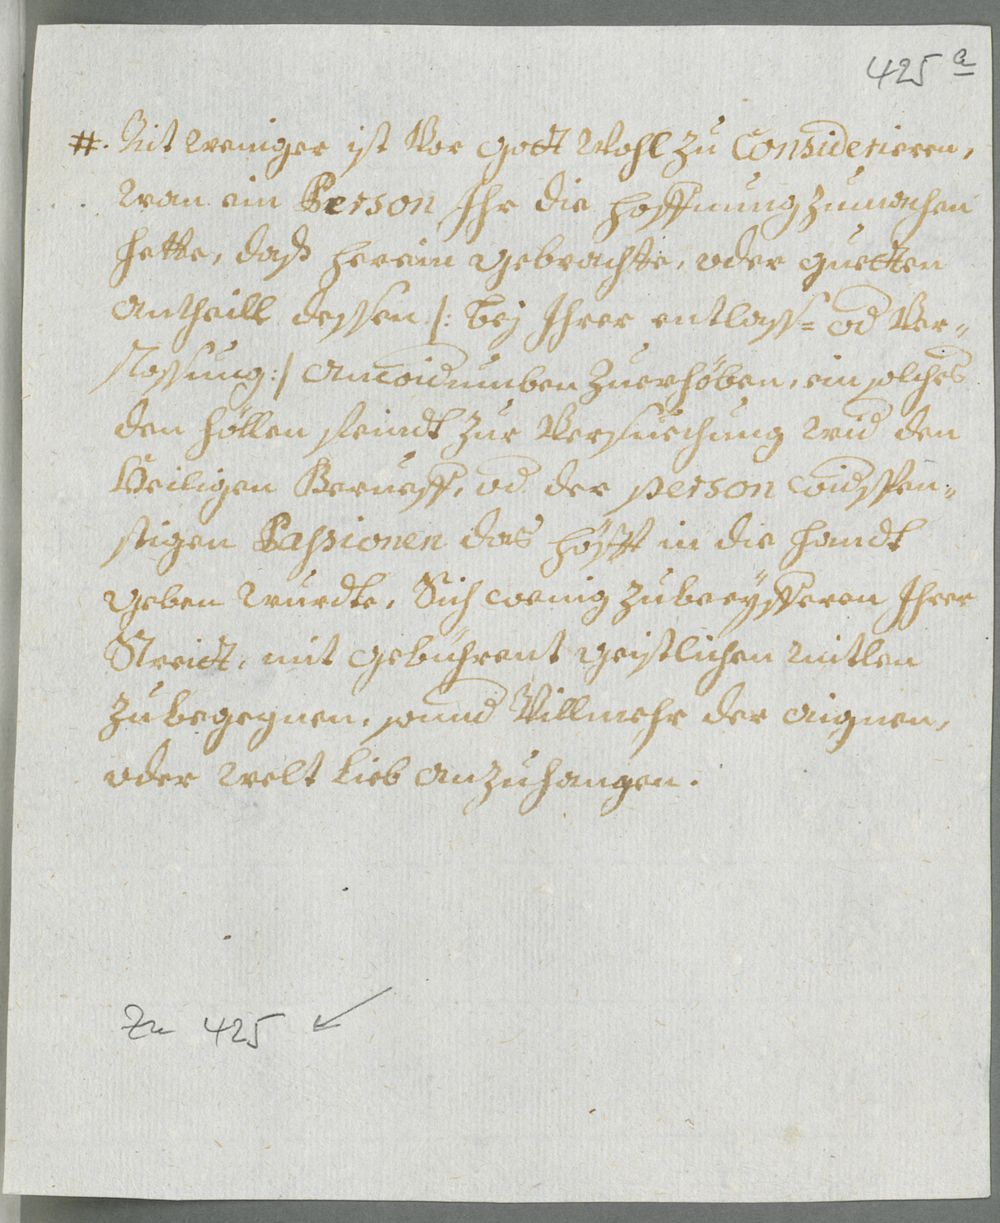 425 a
#. Nit weniger ist Vor gott Wohl zu Considerieren,
wan ein Person Ihr die hoffnung zumachen
hette, daß herein gebrachte, oder guetten
antheill dessen /: beÿ Ihrer entlass= od Ver=
stossung :/ anwidrumben zuerhöben, ein solches
den höllen feindt zur Versuechung wid den
Heiligen Berueff, vd der person widspen=
stigen Passionen das höfft in die handt
geben wurdte, Sich wenig zubeeÿfferen Ihrer
Streitt, mit gebührent geistlichen mitlen
zu begegnen, sonnd Villmehr der aignen,
oder welt lieb anzuhangen.
Zu 425